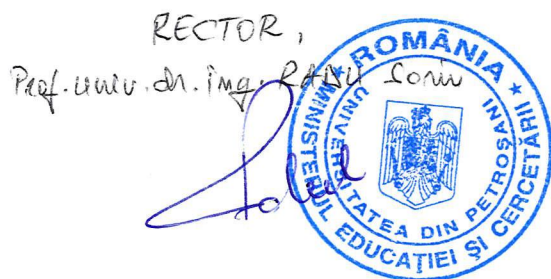 RECTOR,
Prof. univ. dr. ing. RADU Sorin
★ ROMÂNIA ★
MINISTERUL EDUCAȚIEI ȘI CERCETĂRII
UNIVERSITATEA DIN PETROȘANI